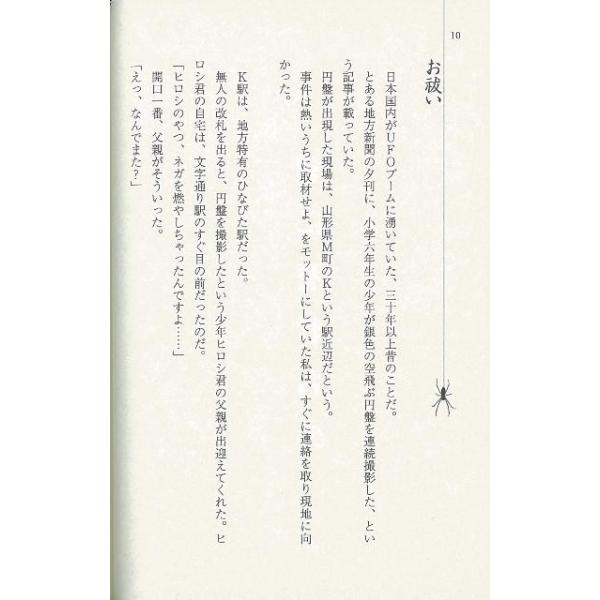 10
お祓い
日本国内がUFOブームに湧いていた、三十年以上昔のことだ。
とある地方新聞の夕刊に、小学六年生の少年が銀色の空飛ぶ円盤を連続撮影した、とい
う記事が載っていた。
円盤が出現した現場は、山形県M町のKという駅近辺だという。
事件は熱いうちに取材せよ、をモットーにしていた私は、すぐに連絡を取り現地に向
かった。
K駅は、地方特有のひなびた駅だった。
無人の改札を出ると、円盤を撮影したという少年ヒロシ君の父親が出迎えてくれた。ヒ
ロシ君の自宅は、文字通り駅のすぐ目の前だったのだ。
「ヒロシのやつ、ネガを燃やしちゃったんですよ……」
開口一番、父親がそういった。
「えっ、なんでまた？」